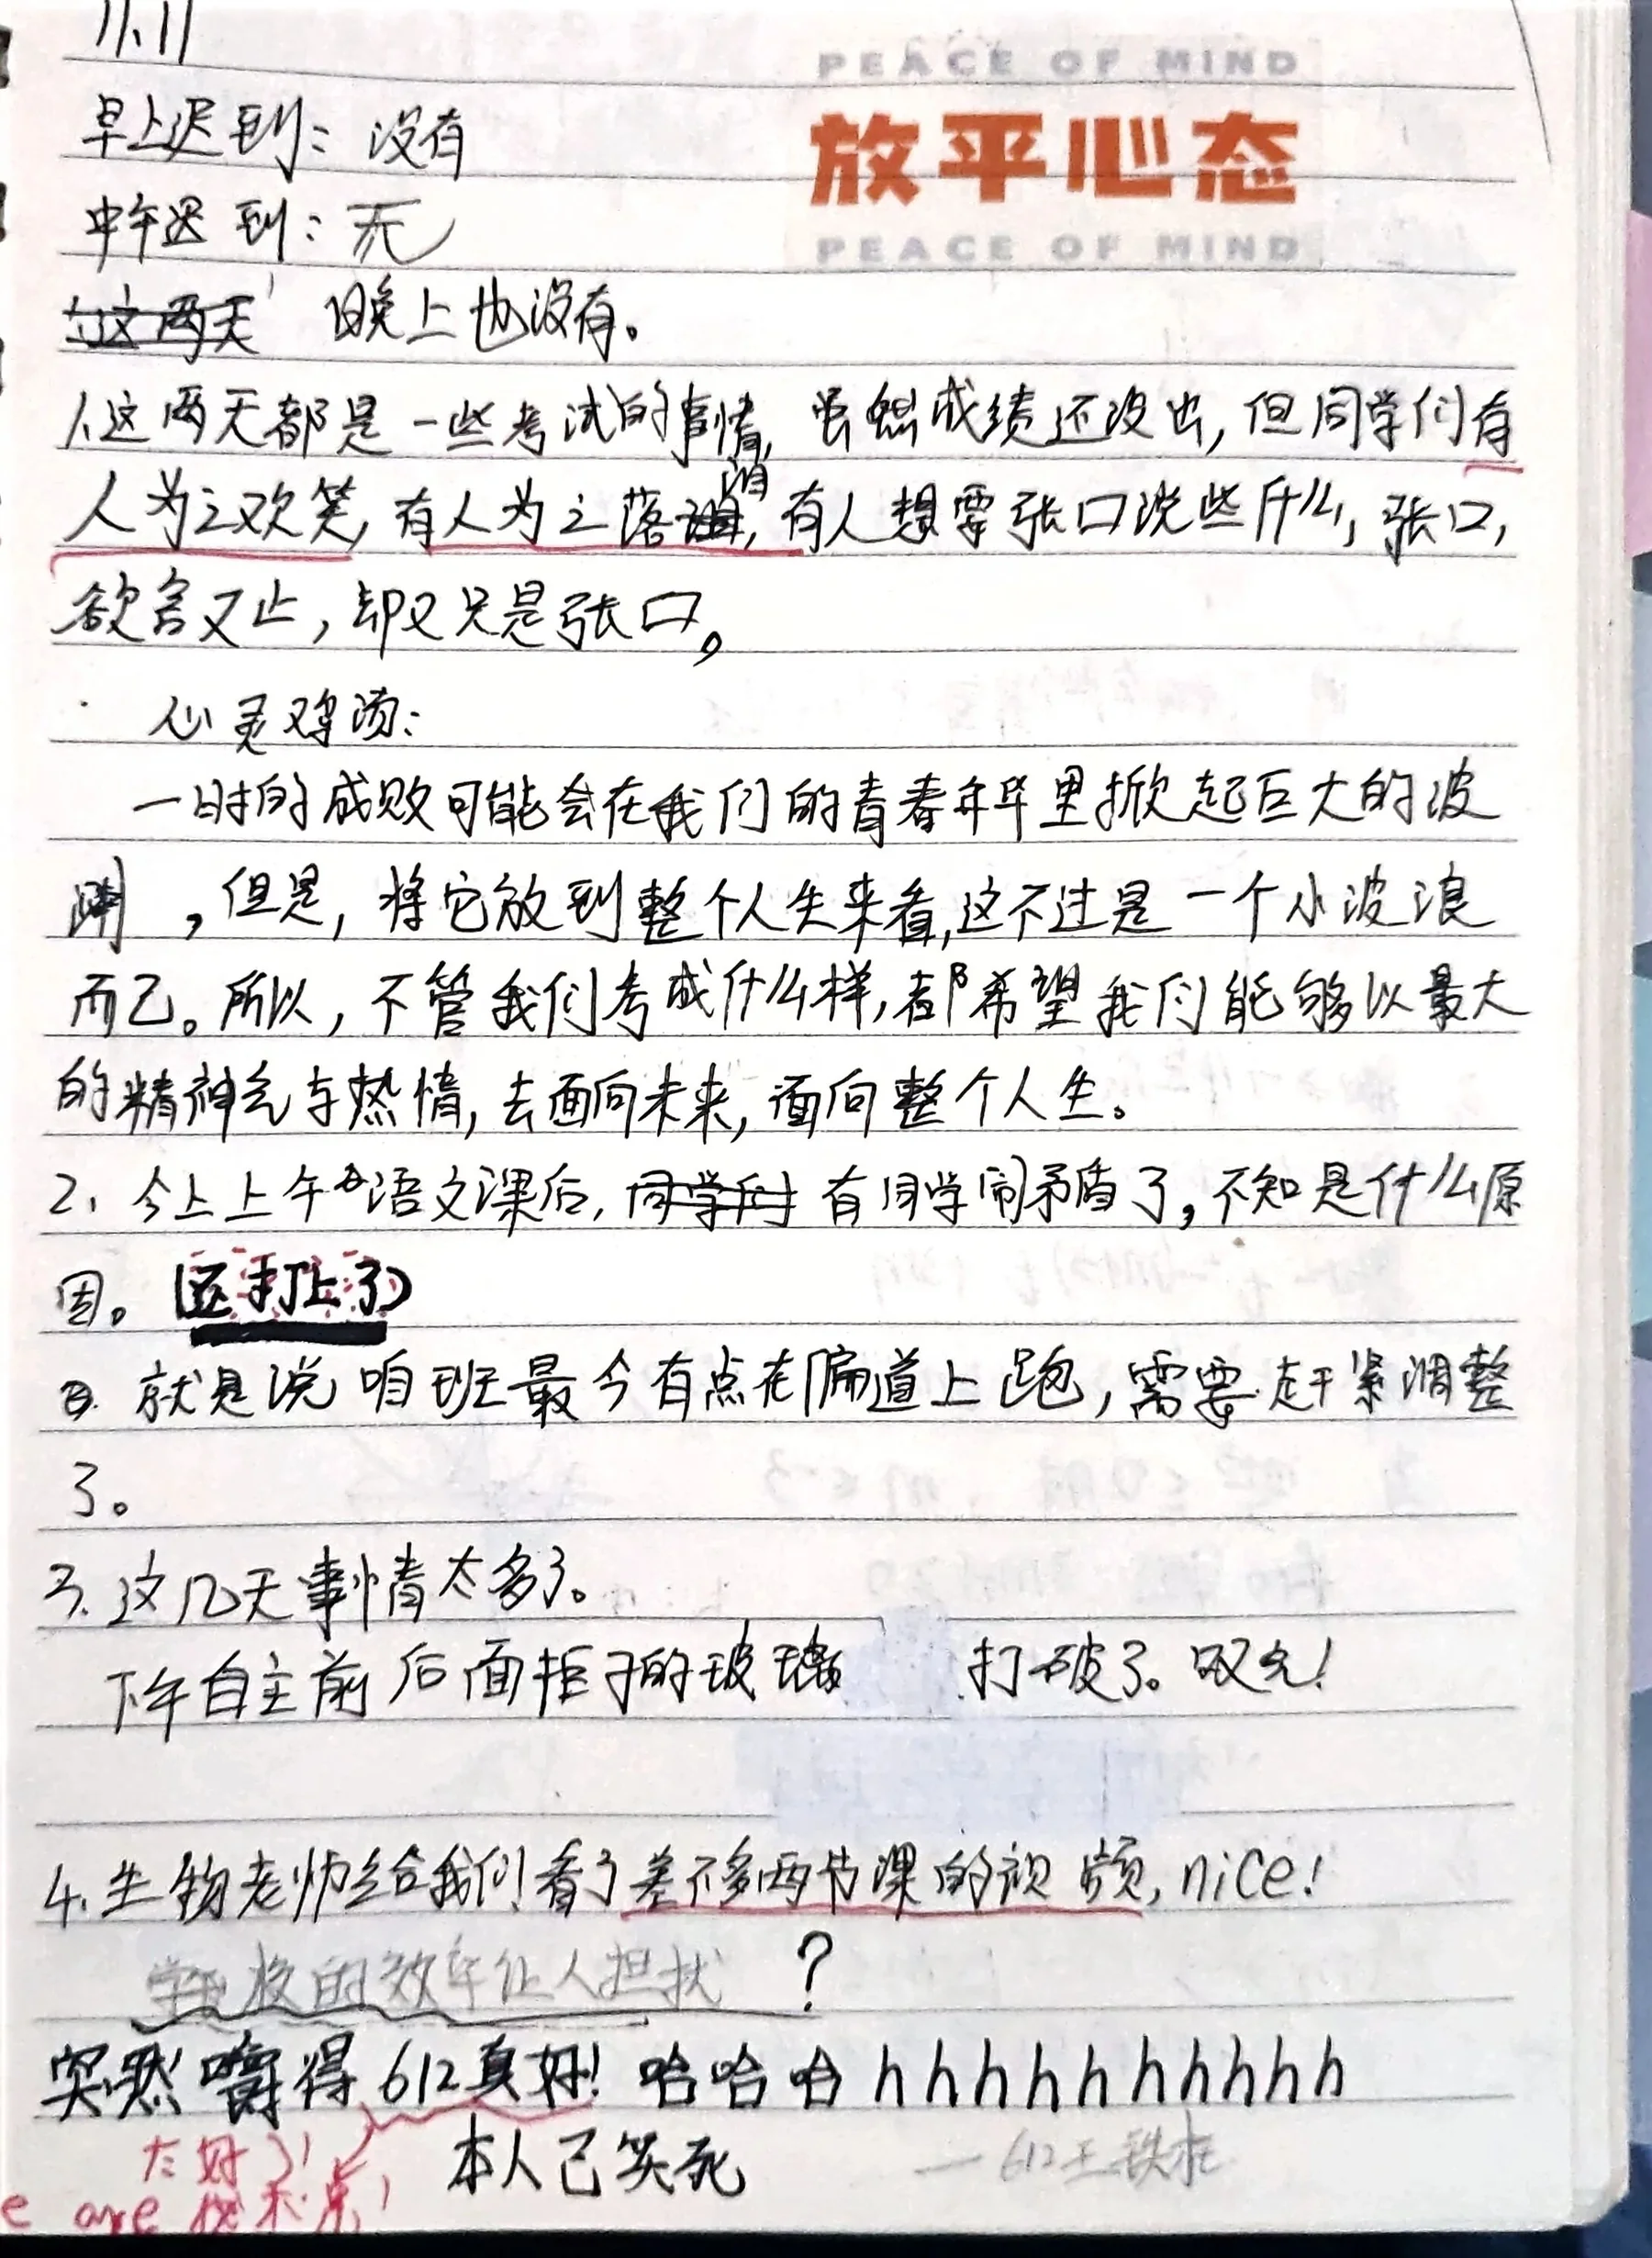 11.11
PEACE OF MIND
放平心态
PEACE OF MIND
早上迟到：没有
中午迟到：无
这两天 晚上也没有。
1.这两天都是一些考试的事情，虽然成绩还没出，但同学们有
人为之欢笑，有人为之落泪，有人想要张口说些什么，张口，
欲言又止，却又只是张口。
心灵鸡汤：
一时的成败可能会在我们的青春年华里掀起巨大的波
澜，但是，将它放到整个人生来看，这不过是一个小波浪
而已。所以，不管我们考成什么样，都希望我们能够以最大
的精神气与热情，去面向未来，面向整个人生。
2、今上上午语文课后，同学们有同学闹矛盾了，不知是什么原
因。（还打上了）
就是说咱班最今有点在偏道上跑，需要赶紧调整
了。
3.这几天事情太多了。
下午自主前后面柜子的玻璃 打破了。叹气！
4.生物老师给我们看了差不多两节课的视频，nice！
学校的效率让人担扰 ？
突然嚼得612真好！哈哈哈hhhhhhhhhh
本人已笑死
太好了！
e are
—612王铁柱